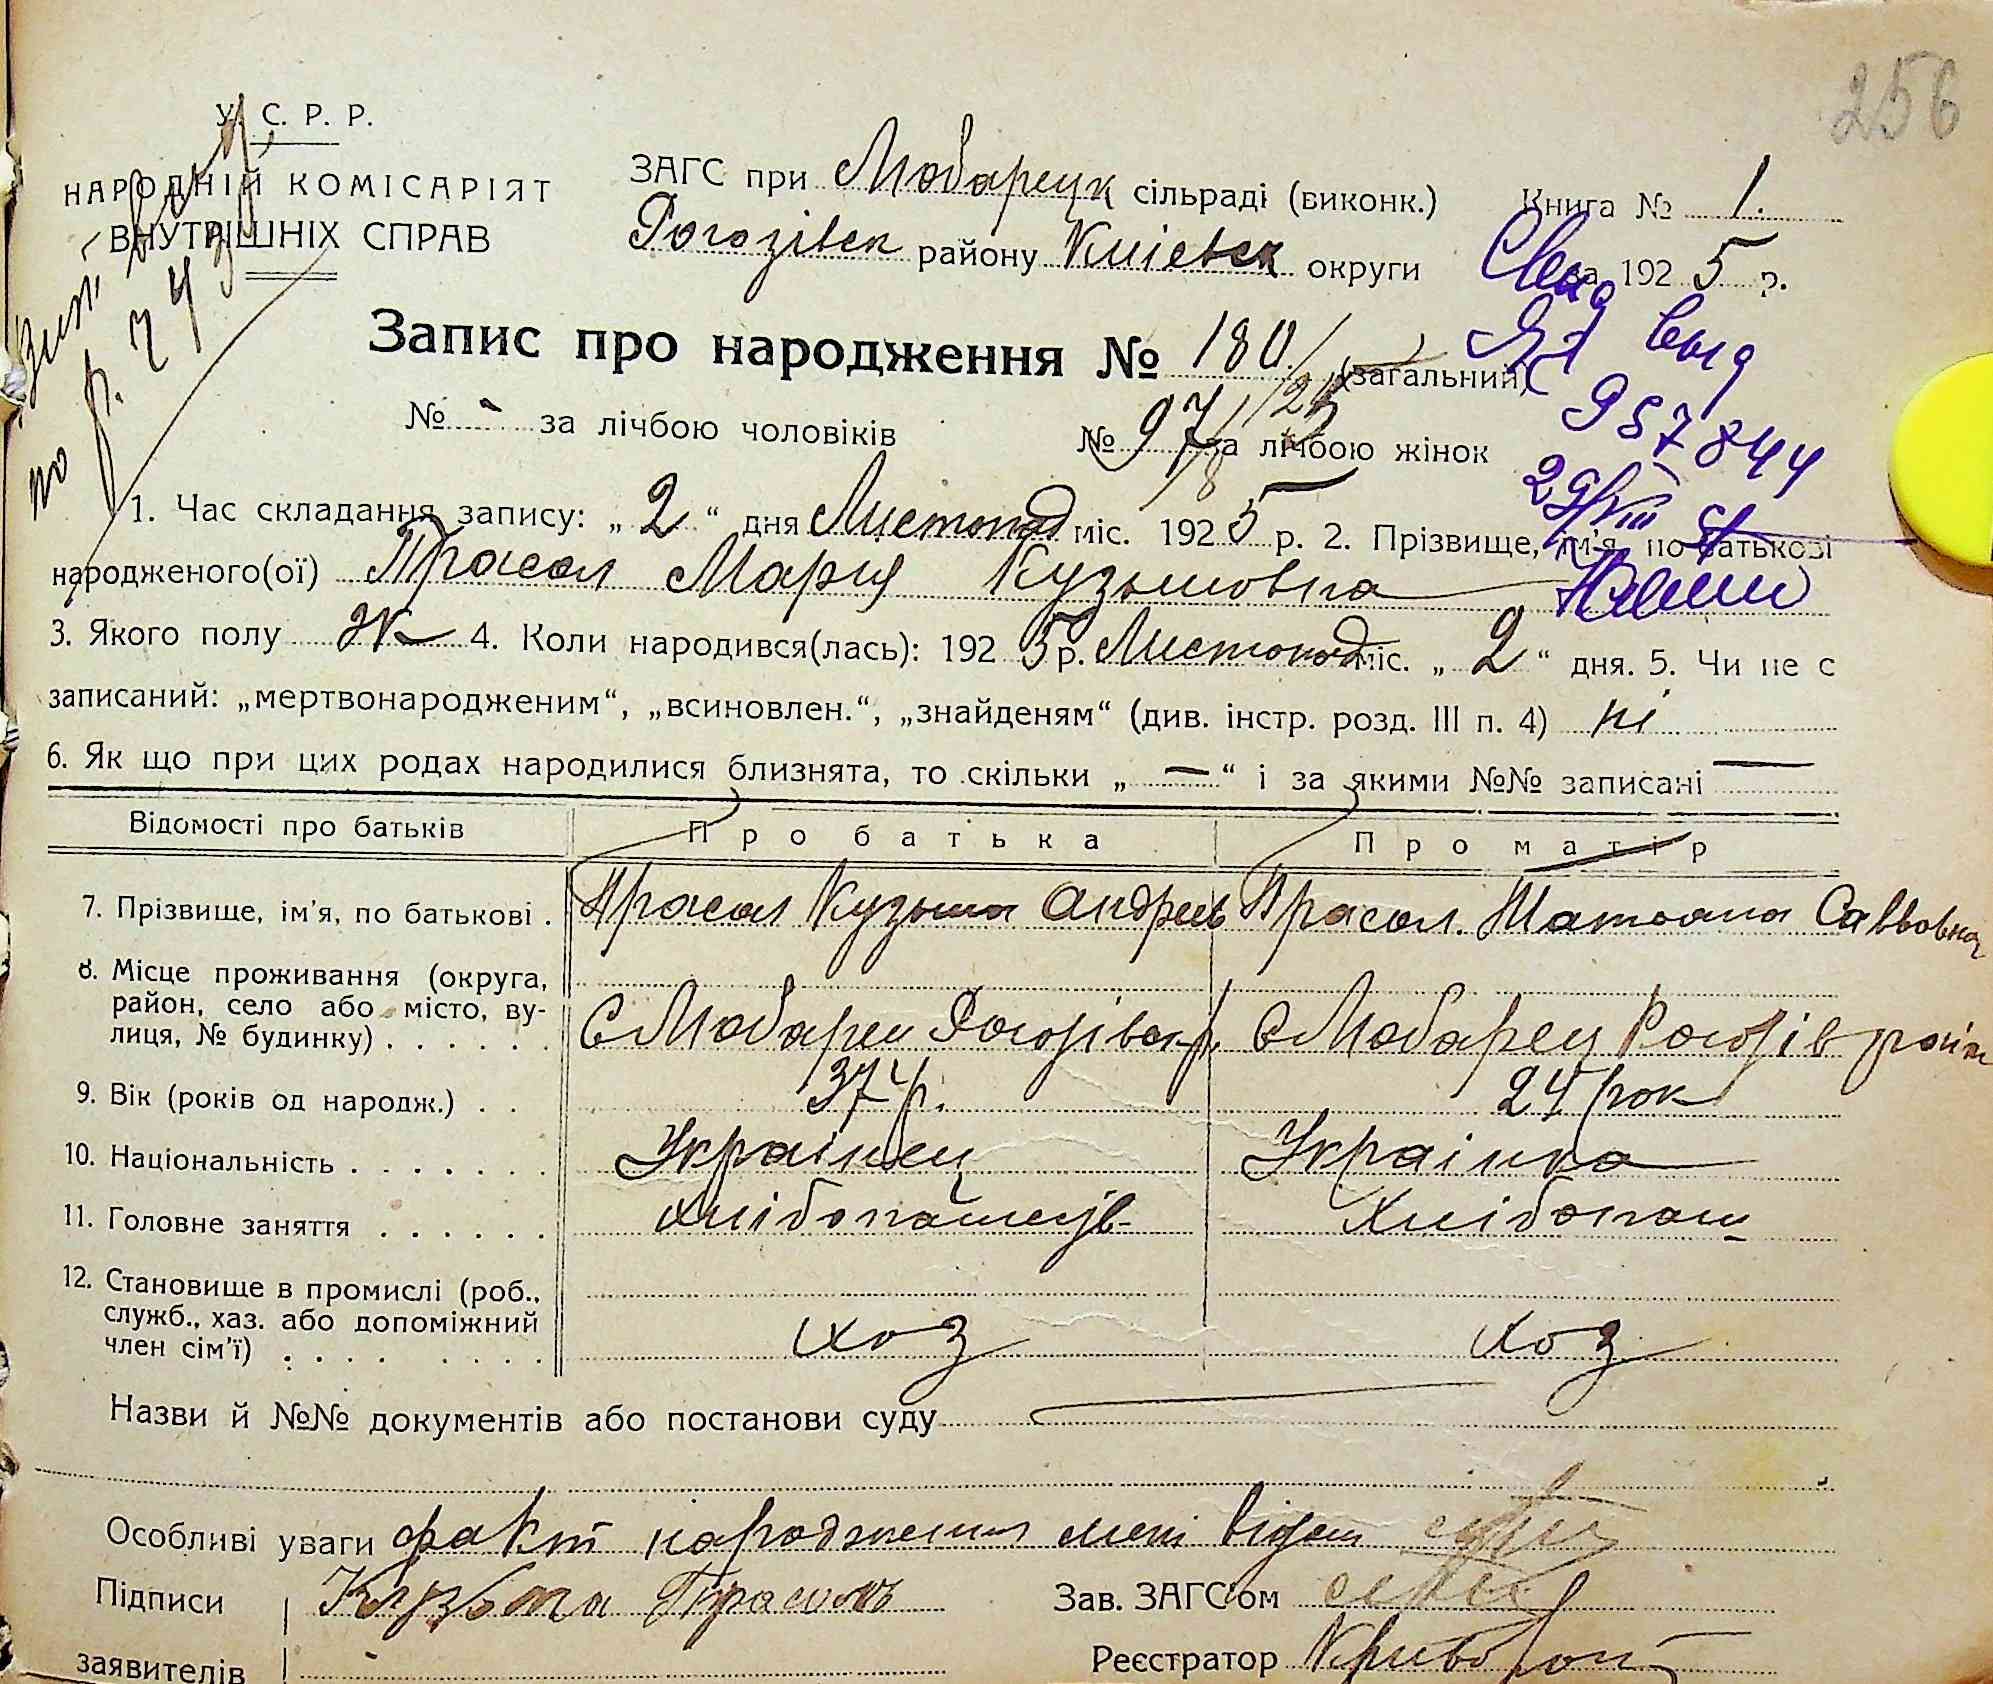 256
У. С. Р. Р.
НАРОДНІЙ КОМІСАРІЯТ
ВНУТРІШНІХ СПРАВ
ЗАГС при Любарецк сільраді (виконк.)
Рогозівск району Київск округи
Книга № 1.
за 1925 р.
Запис про народження № 180 (загальний)
№ - за лічбою чоловіків № 97 за лічбою жінок
выд
957844
29/VIII
1. Час складання запису: „2“ дня Листопад міс. 1925 р. 2. Прізвище, ім'я, по батькові
народженого(ої) Прасол Марія Кузьмовна
3. Якого полу ж 4. Коли народився(лась): 1925 р. Листопад міс. „2“ дня. 5. Чи не є
записаний: „мертвонародженим“, „всиновлен.“, „знайденям“ (див. інстр. розд. III п. 4) ні
6. Як що при цих родах народилися близнята, то скільки „—“ і за якими №№ записані —
Відомості про батьків Про батька Про матір
7. Прізвище, ім'я, по батькові . Прасол Кузьма Андреев Прасол. Татяна Саввовна
8. Місце проживання (округа,
район, село або місто, ву-
лиця, № будинку) . . . . . . С Любарец Рогозівск р. С Любарец Рогозів район
9. Вік (років од народж.) . . 37 р. 24 рок
10. Національність . . . . . . . Українец Українка
11. Головне заняття . . . . . . хлібопашець Хлібопаш
12. Становище в промислі (роб.,
служб., хаз. або допоміжний
член сім'ї) . . . . . . . . хоз хоз
Назви й №№ документів або постанови суду
Особливі уваги факт народження мені відом
Підписи Кузьма Прасолъ Зав. ЗАГС'ом
заявителів Реєстратор